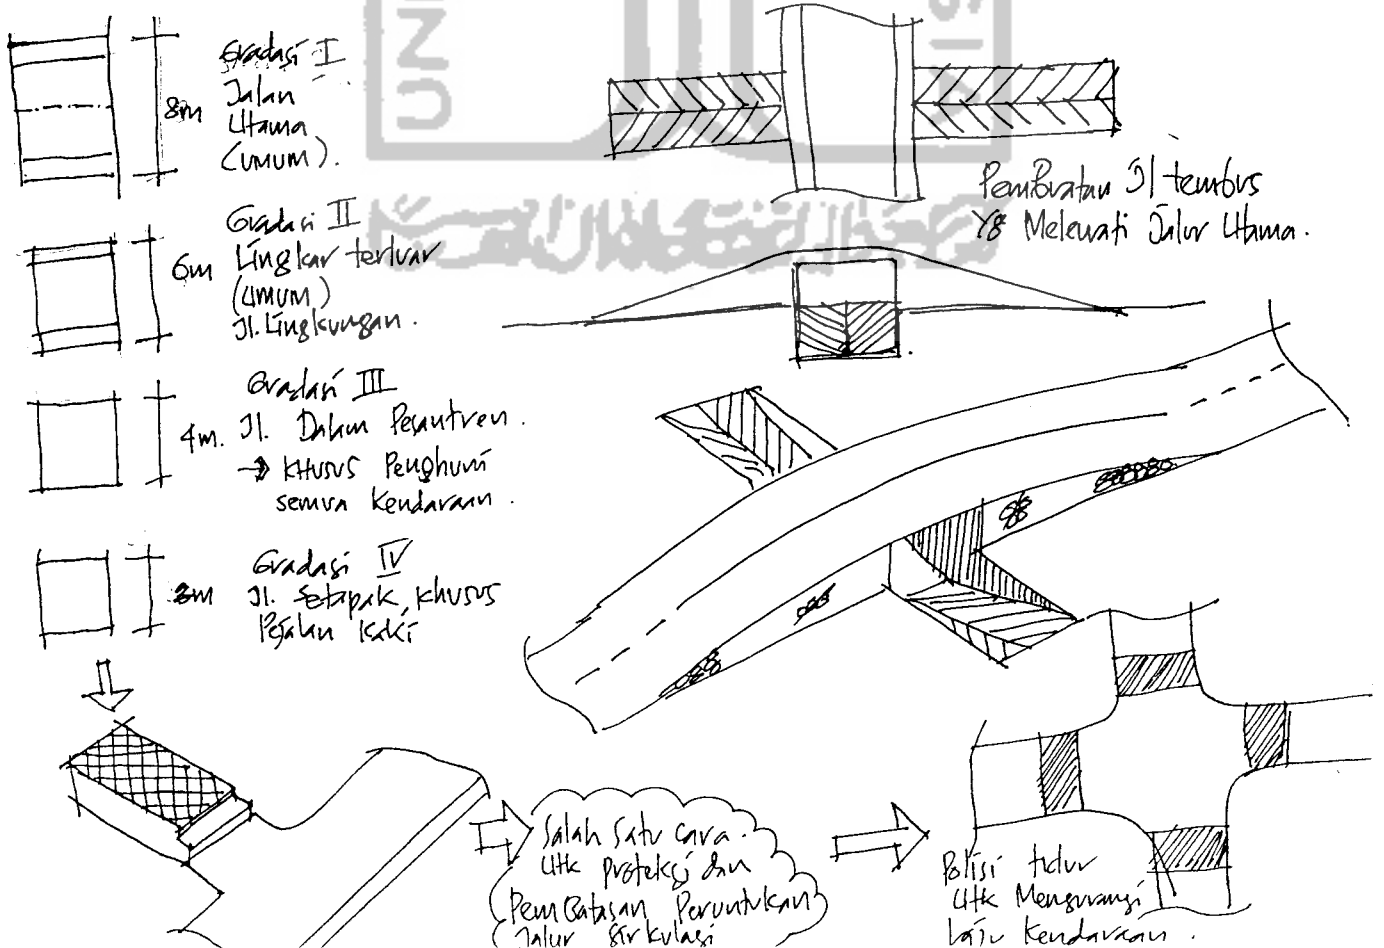 Gradasi I
Jalan
Utama
(UMUM).
8m
Gradasi II
Lingkar terluar
(UMUM)
Jl. Lingkungan.
6m
Gradasi III
Jl. Dalam Pesantren.
→ KHUSUS Penghuni
semua kendaraan.
4m.
Gradasi IV
Jl. Setapak, khusus
Pejalan kaki
3m
Pembuatan Jl tembus
Yg Melewati Jalur Utama.
Salah satu cara.
Utk proteksi dan
Pembatasan Peruntukan
Jalur Sirkulasi
Polisi tidur
Utk Mengurangi
laju kendaraan.
UNI
IS